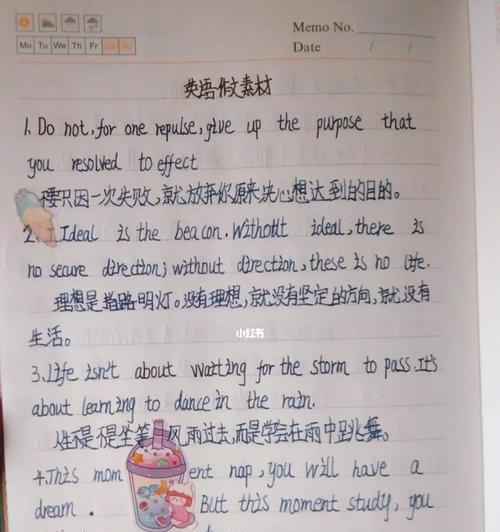 Memo No.
Mo Tu We Th Fr Sa Su
Date / /
英语作文素材
1. Do not, for one repulse, give up the purpose that
you resolved to effect
要只因一次失败,就放弃你原来决心想达到的目的。
2. Ideal is the beacon. Without ideal, there is
no secure direction; without direction, these is no life.
理想是指路明灯。没有理想,就没有坚定的方向,就没有
生活。
小红书
3. Life isn't about waiting for the storm to pass. It's
about learning to dance in the rain.
人生不是 坐等 风雨过去,而是学会在雨中跳舞。
4. This mom ent nap, you will have a
dream. But this moment study, you